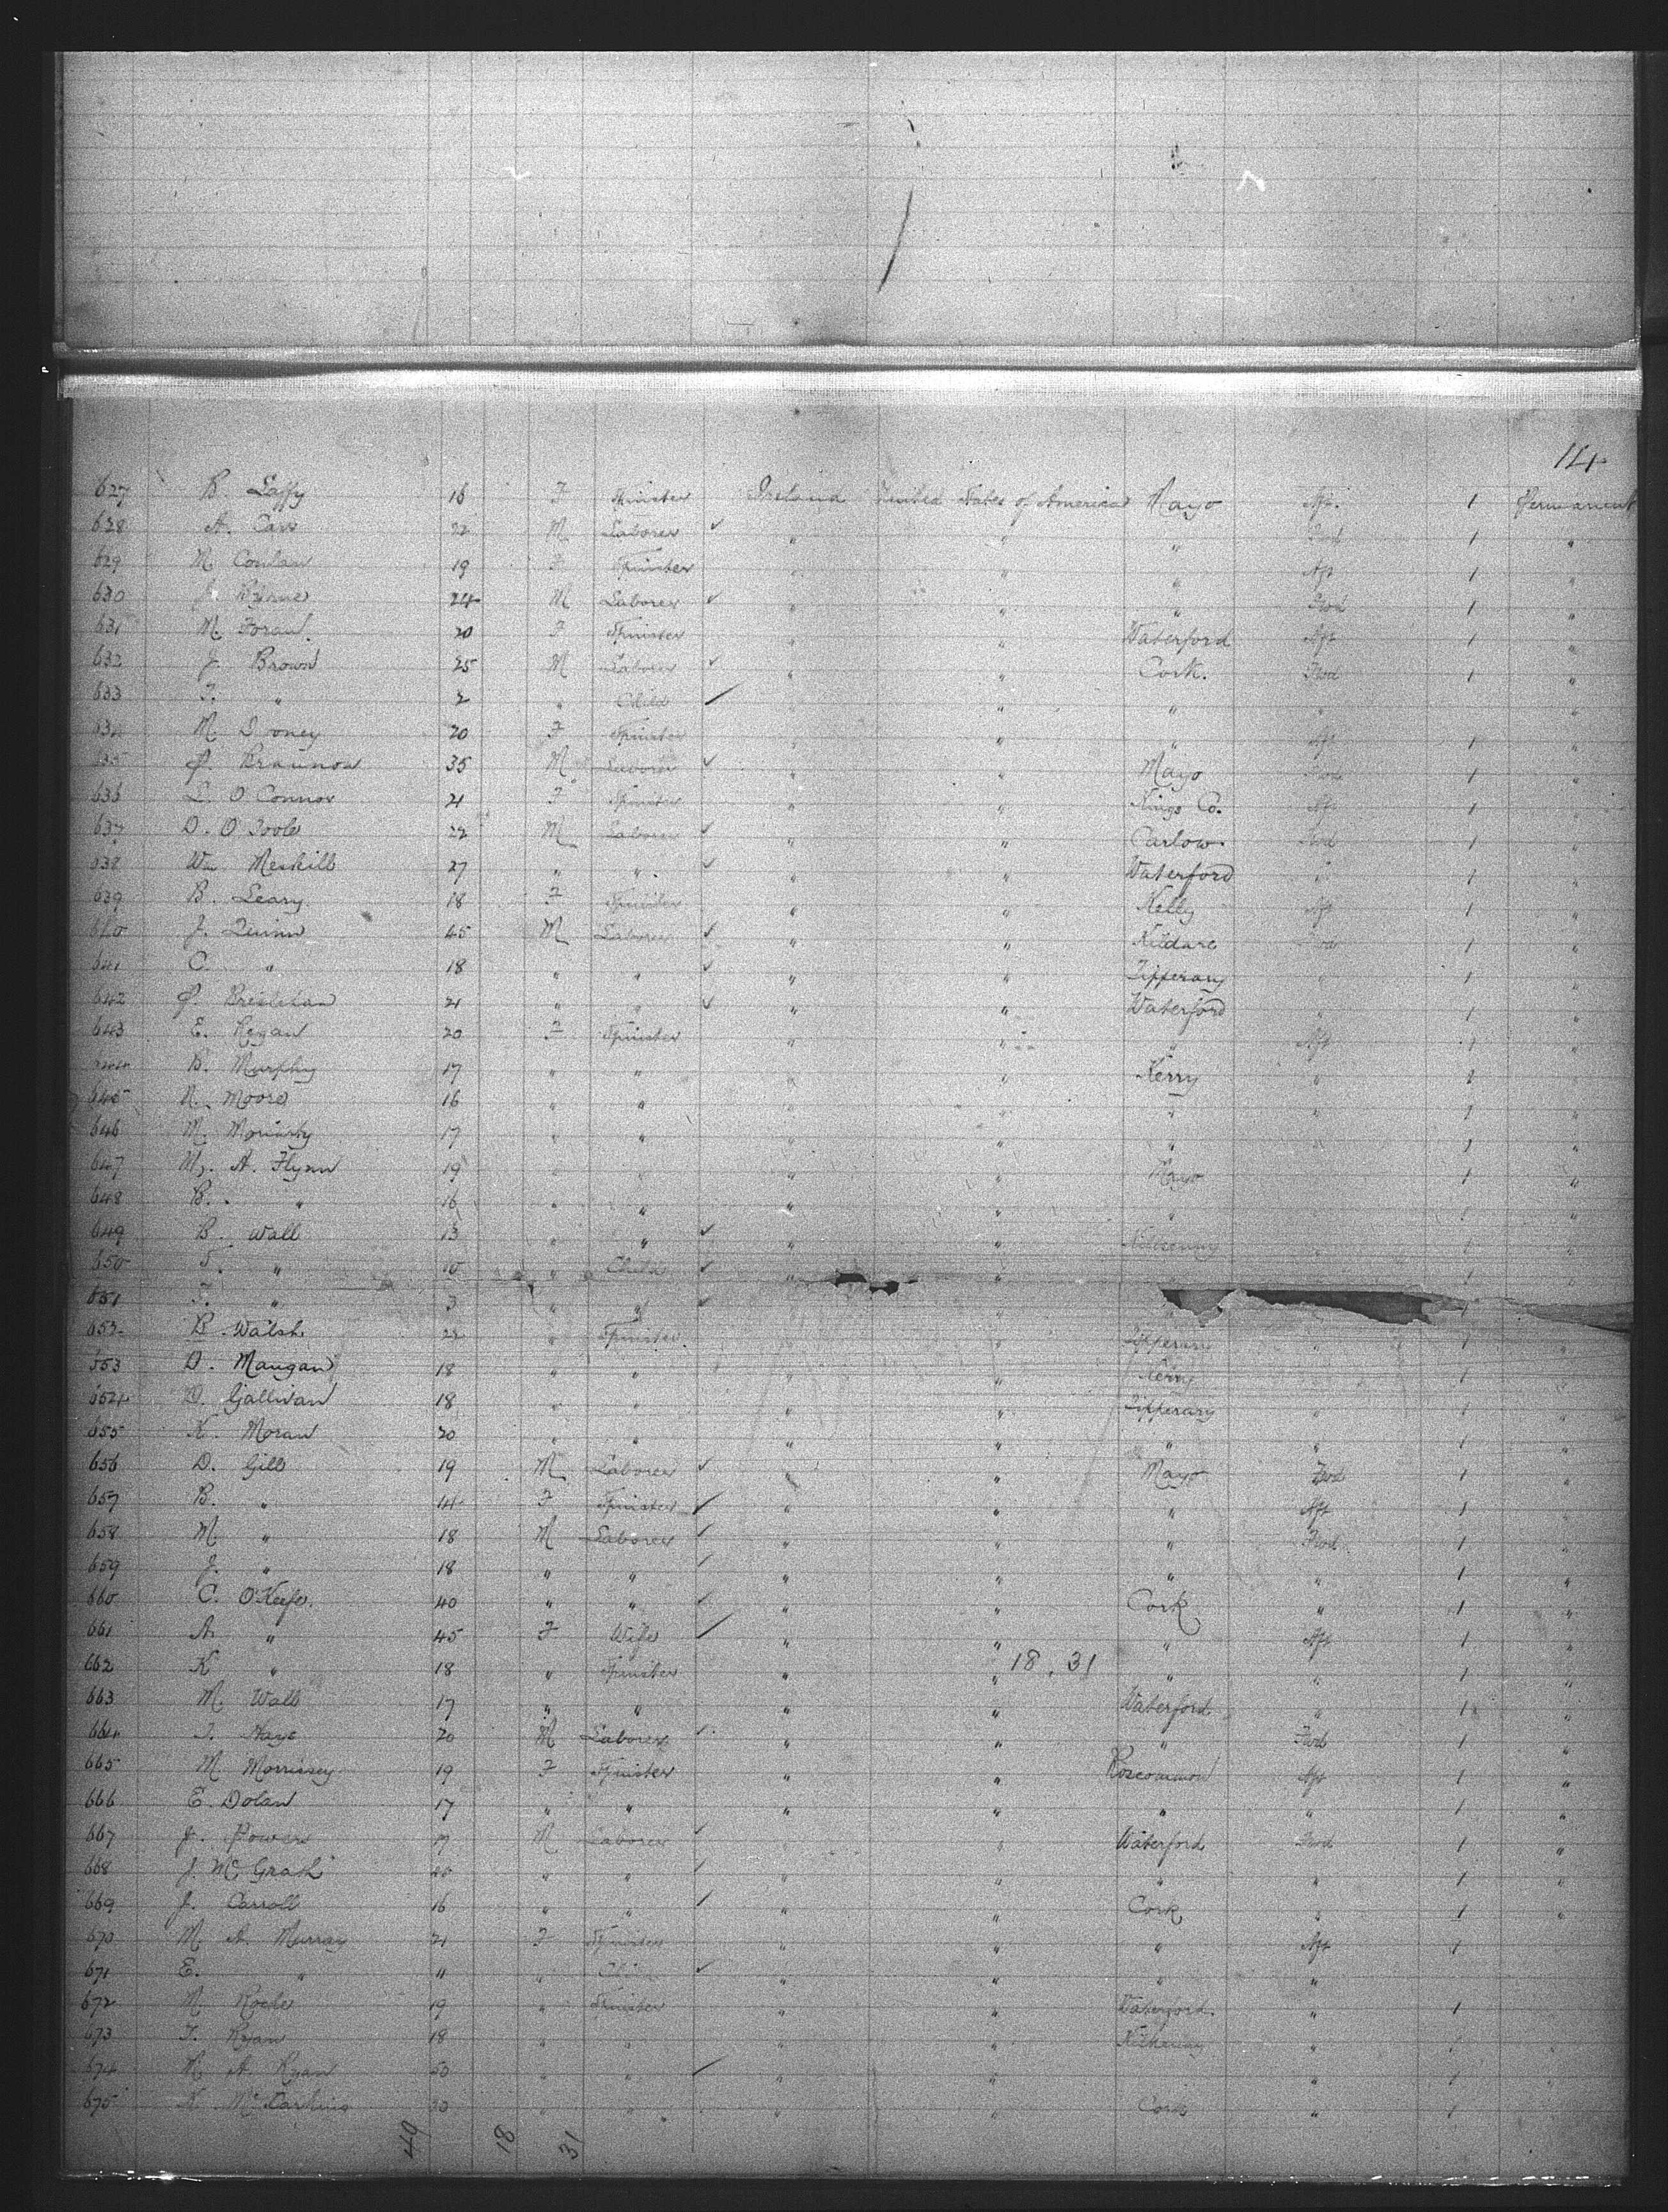 14
627 B. Laffy 16 F Spinster Ireland United States of America Mayo Aft. 1 Permanent
628 A. Carr 22 M Laborer ✓ " " " Fwd 1 "
629 M. Conlan 19 F Spinster " " " Aft 1 "
630 J. Byrne 24 M Laborer ✓ " " " Fwd 1 "
631 M. Foran. 20 F Spinster " " Waterford Aft 1 "
632 J. Brown 25 M Laborer ✓ " " Cork. Fwd 1 "
633 T. " 2 " Child ✓ " " " " "
634 M. 20 F Spinster " " " Aft 1 "
635 P. 35 M Laborer ✓ " " Mayo Fwd 1 "
636 L. O'Connor 21 F Spinster " " Kings Co. Aft 1 "
637 D. O'Toole 22 M Laborer ✓ " " Carlow Fwd 1 "
638 Wm. Meskill 27 " " ✓ " " Waterford " 1 "
639 B. Leary 18 F Spinster " " Kelly Aft 1 "
640 J. Quinn 45 M Laborer ✓ " " Kildare Fwd 1 "
641 C. " 18 " " ✓ " " Tipperary " 1 "
642 P. 21 " " ✓ " " Waterford " 1 "
643 E. Regan 20 F Spinster " " " Aft 1 "
644 B. Murphy 17 " " " " Kerry " 1 "
645 N. Moore 16 " " " " " " 1 "
646 M. Moriarty 17 " " " " " " 1 "
647 My. A. Flynn 19 " " " " Mayo 1 "
648 B. " 16 " " " " " 1 "
649 B. Wall 13 " " ✓ " " Kilkenny 1 "
650 S. " 10 " Child ✓ " " 1
651 T. " 3 " " ✓ " " 1
652 B. Walsh 22 " Spinster " " Tipperary " 1 "
653 D. Mangan 18 " " " " Kerry " 1 "
654 D. Gallivan 18 " " " " Tipperary " 1 "
655 K. Moran 20 " " " " " " 1 "
656 D. Gill 19 M Laborer ✓ " " Mayo Fwd 1 "
657 B. " 14 F Spinster ✓ " " " Aft 1 "
658 M. " 18 M Laborer ✓ " " " Fwd 1 "
659 J. " 18 " " ✓ " " " " 1 "
660 C. O'Keefe. 40 " " ✓ " " Cork " 1 "
661 A. " 45 F Wife ✓ " " " Aft 1 "
662 K " 18 " Spinster " " 18.31 " " 1 "
663 M. Wall 17 " " " " Waterford " 1 "
664 T. Hays 20 M Laborer ✓ " " " Fwd 1 "
665 M Morrissey 19 F Spinster " " Roscommon Aft 1 "
666 E. Dolan 17 " " " " " " 1 "
667 J. Power 17 M Laborer ✓ " " Waterford Fwd 1 "
668 J. McGrath 20 " " ✓ " " " " 1 "
669 J. Carroll 16 " " ✓ " " Cork " 1 "
670 M. A. Murray 21 F Spinster " " " Aft 1
671 E. " 11 " ✓ " " " "
672 M. 19 " Spinster " " Waterford. " 1
673 T. Ryan 18 " " " " Kilkenny " 1
674 M. A. Ryan 50 " " ✓ " " " 1
675 K. 30 " " " " Cork " 1
49 18 31